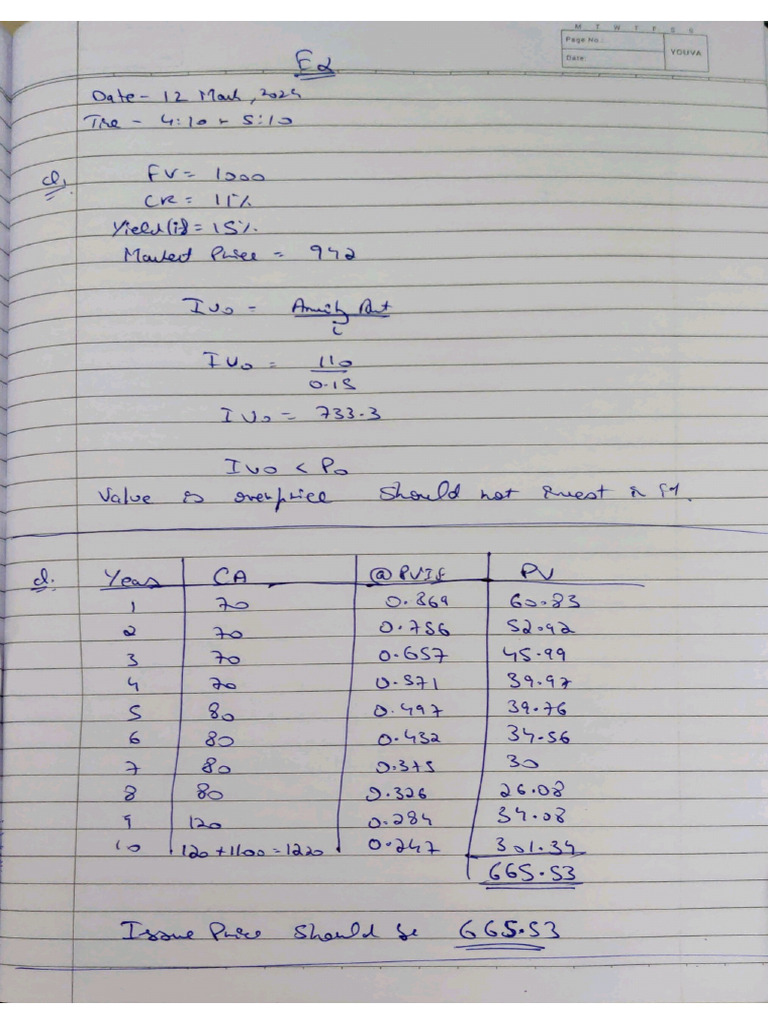 M T W T F S S
Page No.:
YOUVA
Date:
E2
Date - 12 March, 2024
Time - 4:10 - 5:10
Q1. FV = 1000
CR = 11%
Yield (i) = 15%
Market Price = 942
IV0 = Annuity Amt / i
IV0 = 110 / 0.15
IV0 = 733.3
IV0 < P0
Value is overprice should not invest in it.
Q. Years CA @PVIF PV
1 70 0.869 60.83
2 70 0.756 52.92
3 70 0.657 45.99
4 70 0.571 39.97
5 80 0.497 39.76
6 80 0.432 34.56
7 80 0.375 30
8 80 0.326 26.08
9 120 0.284 34.08
10 120+1100=1220 0.247 301.34
665.53
Issue Price should be 665.53